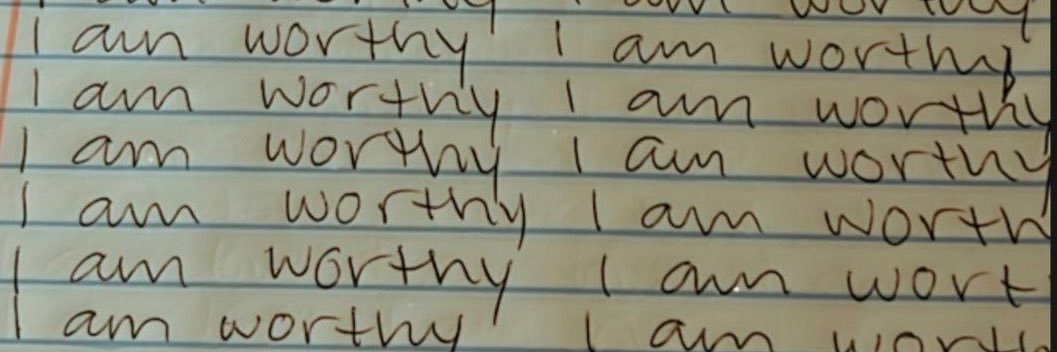 I am worthy I am worthy
I am worthy I am worthy
I am worthy I am worthy
I am worthy I am worthy
I am worth I am worth
I am worthy I am wort
I am worthy I am worth